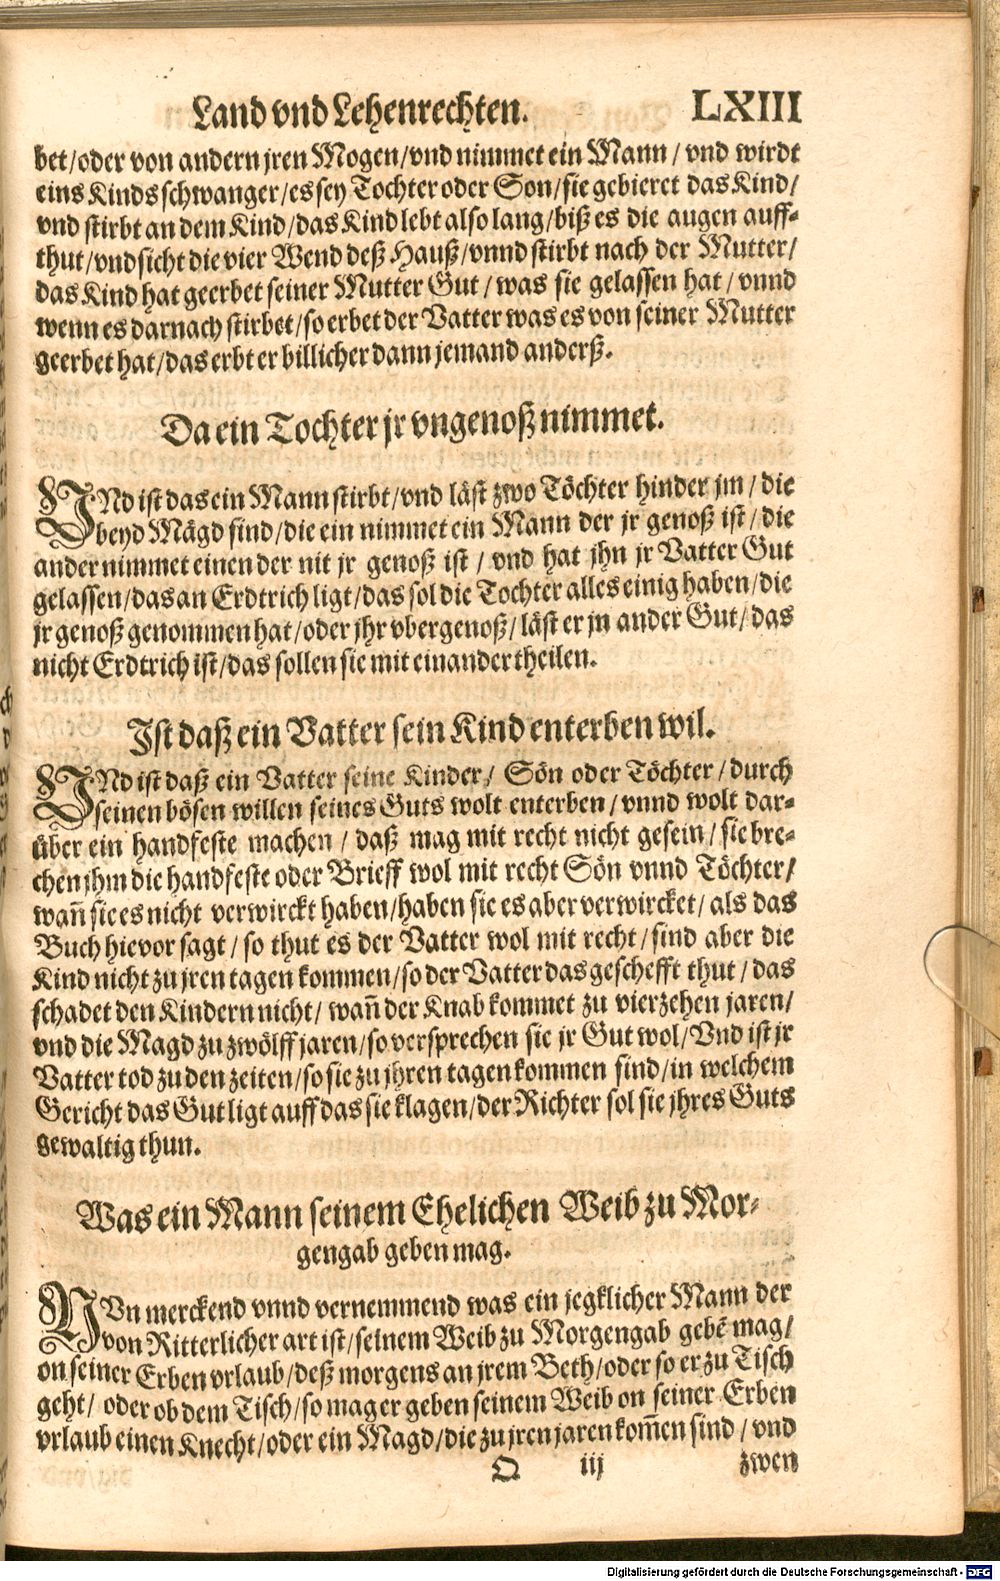 Land vnd Lehenrechten. LXIII
bet/oder von andern jren Mogen/vnd nimmet ein Mann/ vnd wirdt
eins Kinds schwanger/es sey Tochter oder Son/sie gebieret das Kind/
vnd stirbt an dem Kind/das Kind lebt also lang/biß es die augen auff-
thut/vnd sicht die vier Wend deß Hauß/vnnd stirbt nach der Mutter/
das Kind hat geerbet seiner Mutter Gut/was sie gelassen hat/vnnd
wenn es darnach stirbet/so erbet der Vatter was es von seiner Mutter
geerbet hat/das erbt er billicher dann jemand anderß.
Da ein Tochter jr vngenoß nimmet.
JNd ist das ein Mann stirbt/vnd läst zwo Töchter hinder jm/die
beyd Mägd sind/die ein nimmet ein Mann der jr genoß ist/die
ander nimmet einen der nit jr genoß ist/vnd hat jhn jr Vatter Gut
gelassen/das an Erdtrich ligt/das sol die Tochter alles einig haben/die
jr genoß genommen hat/oder jhr vbergenoß/läst er jn ander Gut/das
nicht Erdtrich ist/das sollen sie mit einander theilen.
Jst daß ein Vatter sein Kind enterben wil.
JNd ist daß ein Vatter seine Kinder/ Sön oder Töchter/durch
seinen bösen willen seines Guts wolt enterben/vnnd wolt dar-
über ein handfeste machen/ daß mag mit recht nicht gesein/sie bre-
chen jhm die handfeste oder Brieff wol mit recht Sön vnnd Töchter/
wañ sie es nicht verwirckt haben/haben sie es aber verwircket/als das
Buch hievor sagt/so thut es der Vatter wol mit recht/sind aber die
Kind nicht zu jren tagen kommen/so der Vatter das geschefft thut/das
schadet den Kindern nicht/ wañ der Knab kommet zu vierzehen jaren/
vnd die Magd zu zwölff jaren/so versprechen sie jr Gut wol/Vnd ist jr
Vatter tod zu den zeiten/so sie zu jhren tagen kommen sind/in welchem
Gericht das Gut ligt auff das sie klagen/der Richter sol sie jhres Guts
gewaltig thun.
Was ein Mann seinem Ehelichen Weib zu Mor-
gengab geben mag.
NVn merckend vnnd vernemmend was ein jegklicher Mann der
von Ritterlicher art ist/seinem Weib zu Morgengab gebē mag/
on seiner Erben vrlaub/deß morgens an jrem Beth/oder so er zu Tisch
geht/ oder ob dem Tisch/so mag er geben seinem Weib on seiner Erben
vrlaub einen Knecht/oder ein Magd/die zu jren jaren kom̄en sind/vnd
O iij zwen
Digitalisierung gefördert durch die Deutsche Forschungsgemeinschaft - DFG